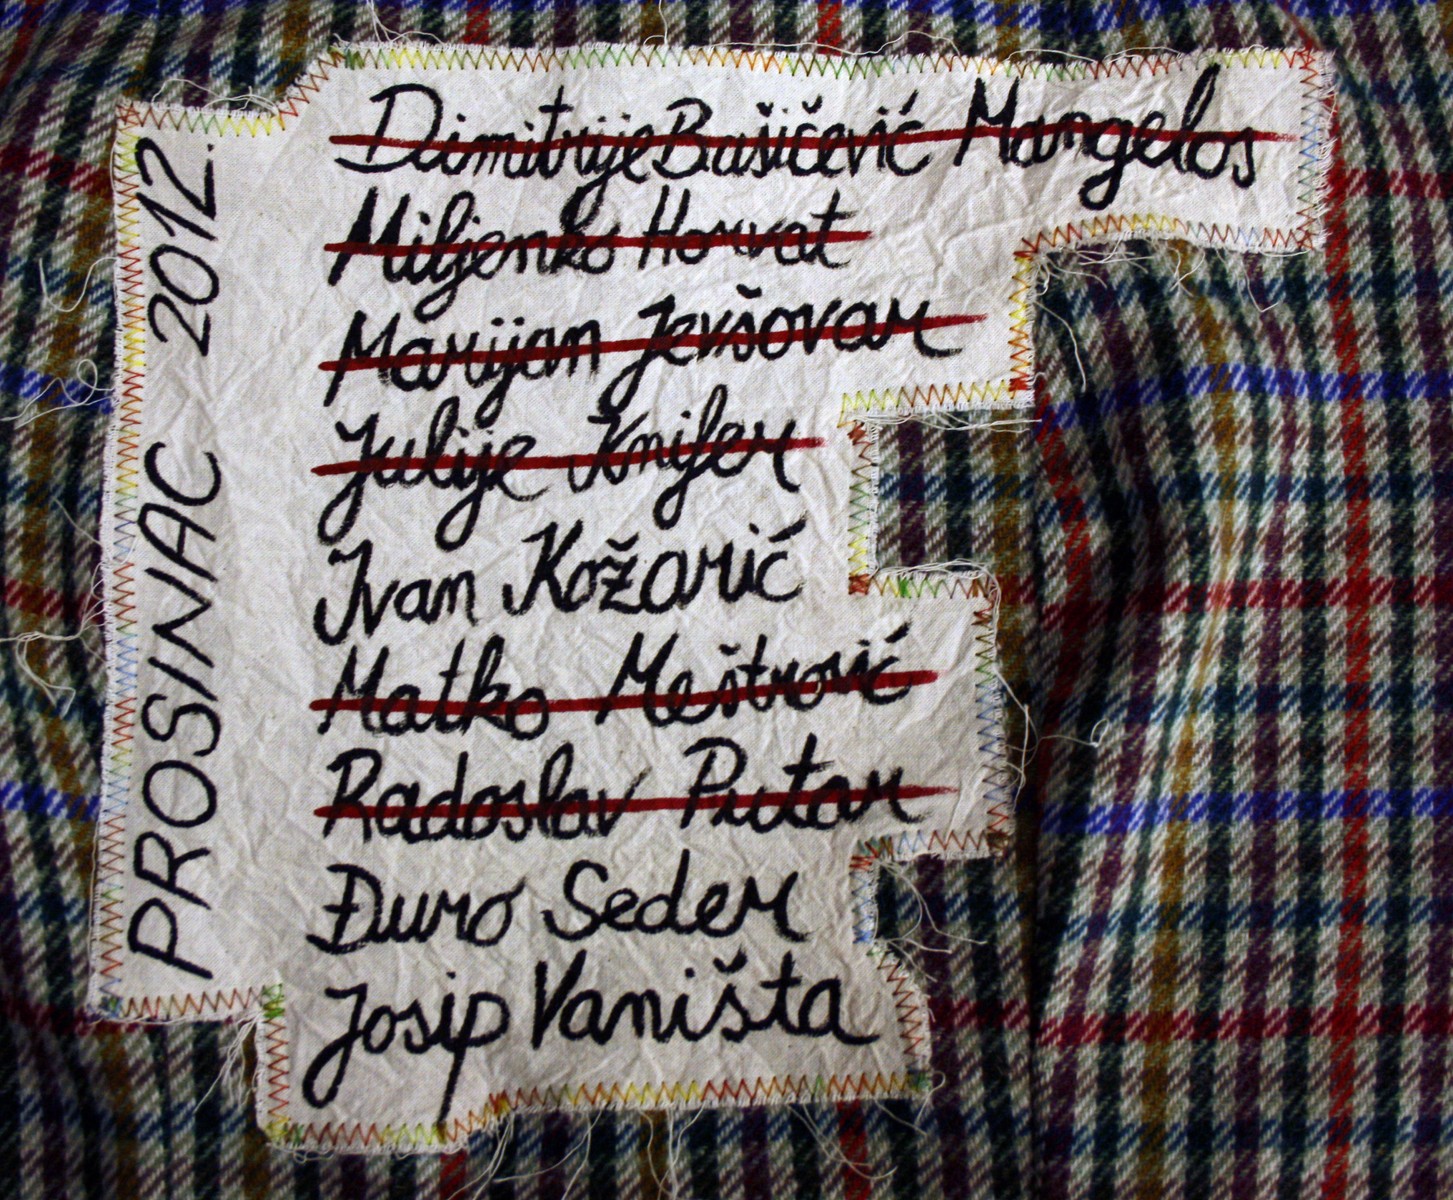 PROSINAC 2012.
Dimitrije Bašičević Mangelos
Miljenko Horvat
Marijan Jevšovar
Julije Knifer
Ivan Kožarić
Matko Meštrović
Radoslav Putar
Đuro Seder
Josip Vaništa